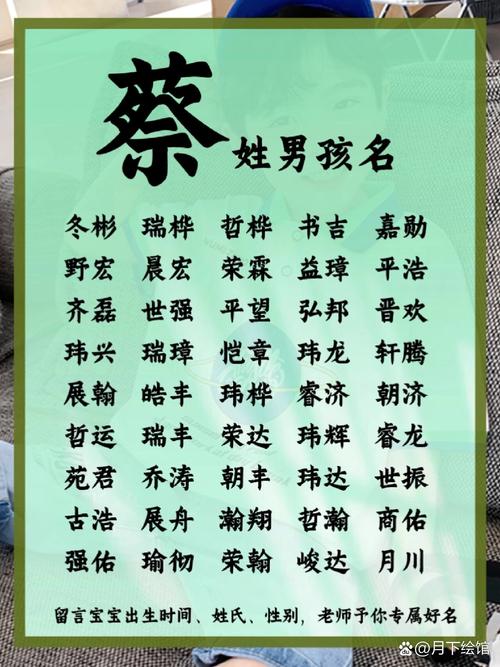 蔡姓男孩名
冬彬 瑞桦 哲桦 书吉 嘉勋
野宏 晨宏 荣霖 益璋 平浩
齐磊 世强 平望 弘邦 晋欢
玮兴 瑞璋 恺章 玮龙 轩腾
展翰 皓丰 玮桦 睿济 朝济
哲运 瑞丰 荣达 玮辉 睿龙
苑君 乔涛 朝丰 玮达 世振
古浩 展舟 瀚翔 哲瀚 商佑
强佑 瑜彻 荣翰 峻达 月川
留言宝宝出生时间、姓氏、性别，老师予你专属好名
@月下绘馆